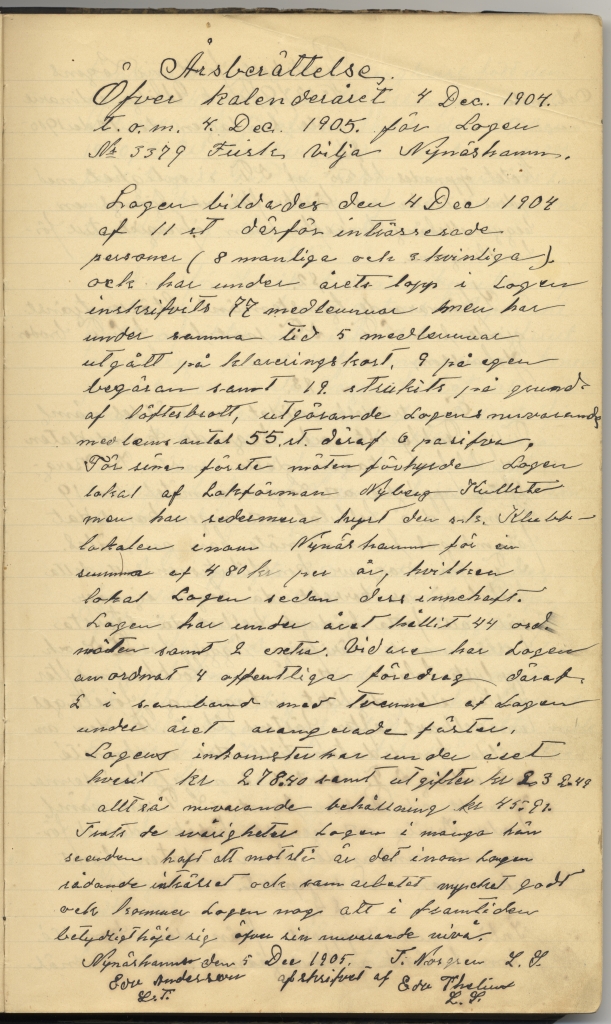 Årsberättelse.
Öfver kalenderåret 4 Dec. 1904.
t. o. m. 4. Dec. 1905. för Logen
No 3379 Frisk Vilja Nynäshamn.
Logen bildades den 4 Dec 1904
af 11 st därför inträsserade
personer (8 manliga och 3 kvinliga).
och har under årets lopp i Logen
inskrifvits 77 medlemmar men har
under samma tid 5 medlemmar
utgått på klareringskort, 9 på egen
begäran samt 19. strukits på grund
af löftesbrott, utgörande Logens nuvarande
medlemsantal 55. st. däraf 6 pasifva.
För sina första möten förhyrde Logen
lokal af Lokförman Nyberg
men har sedermera hyrt den s.k. Klubb-
lokalen inom Nynäshamn för en
summa af 480 kr per år, hvilken
lokal Logen sedan dess innehaft.
Logen har under året hållit 44 ord.
möten samt 2 extra. Vidare har Logen
anordnat 4 offentliga föredrag däraf
2 i samband med tvenne af Logen
under året arangerade fäster.
Logens inkomster har under året
kr 278.40 samt utgifter kr 232.49
alltså nuvarande behållning kr 45.91.
Trots de svårigheter Logen i många hän
seenden haft att motstå är det inom Logen
rådande inträsset och samarbetet mycket godt
och kommer Logen nog att i framtiden
betydligt höje sig öfver sin nuvarande niva.
Nynäshamn den 5 Dec 1905. T. Norgren L. S.
Edv Andersson afskrifvet af Edv Thelin
L.T. L. S.